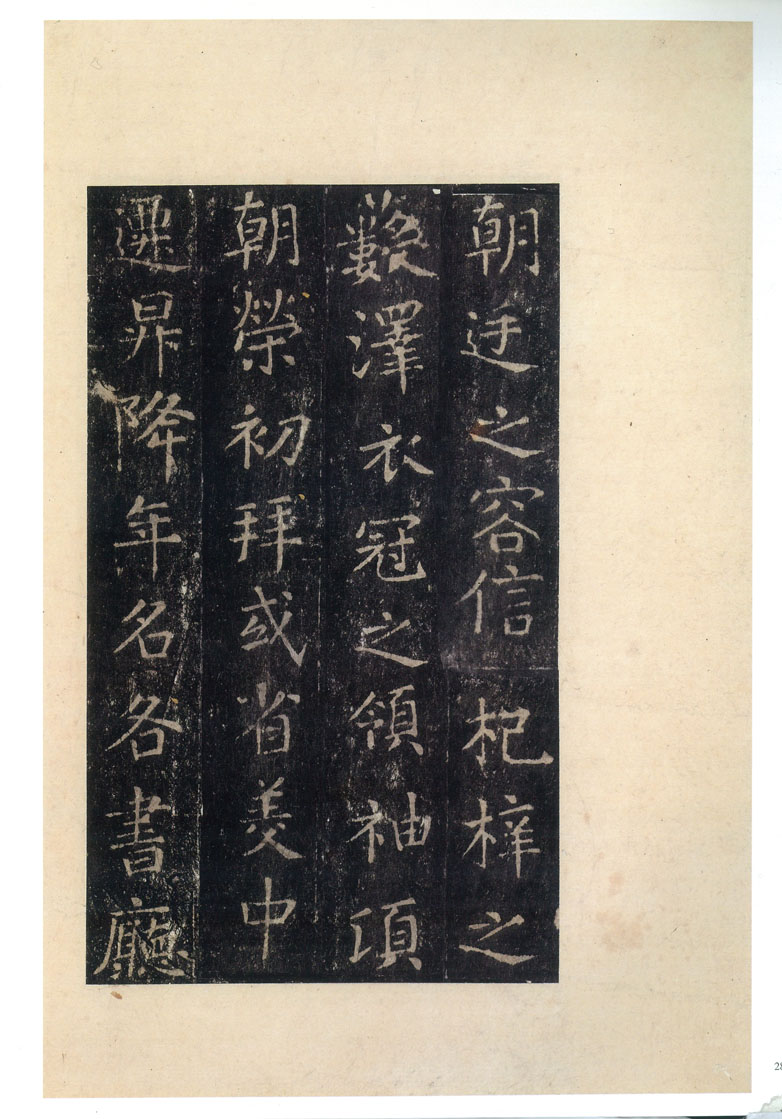 朝廷之容信杞梓之
藪澤衣冠之領袖頃
朝榮初拜或省美中
遷昇降年名各書廳